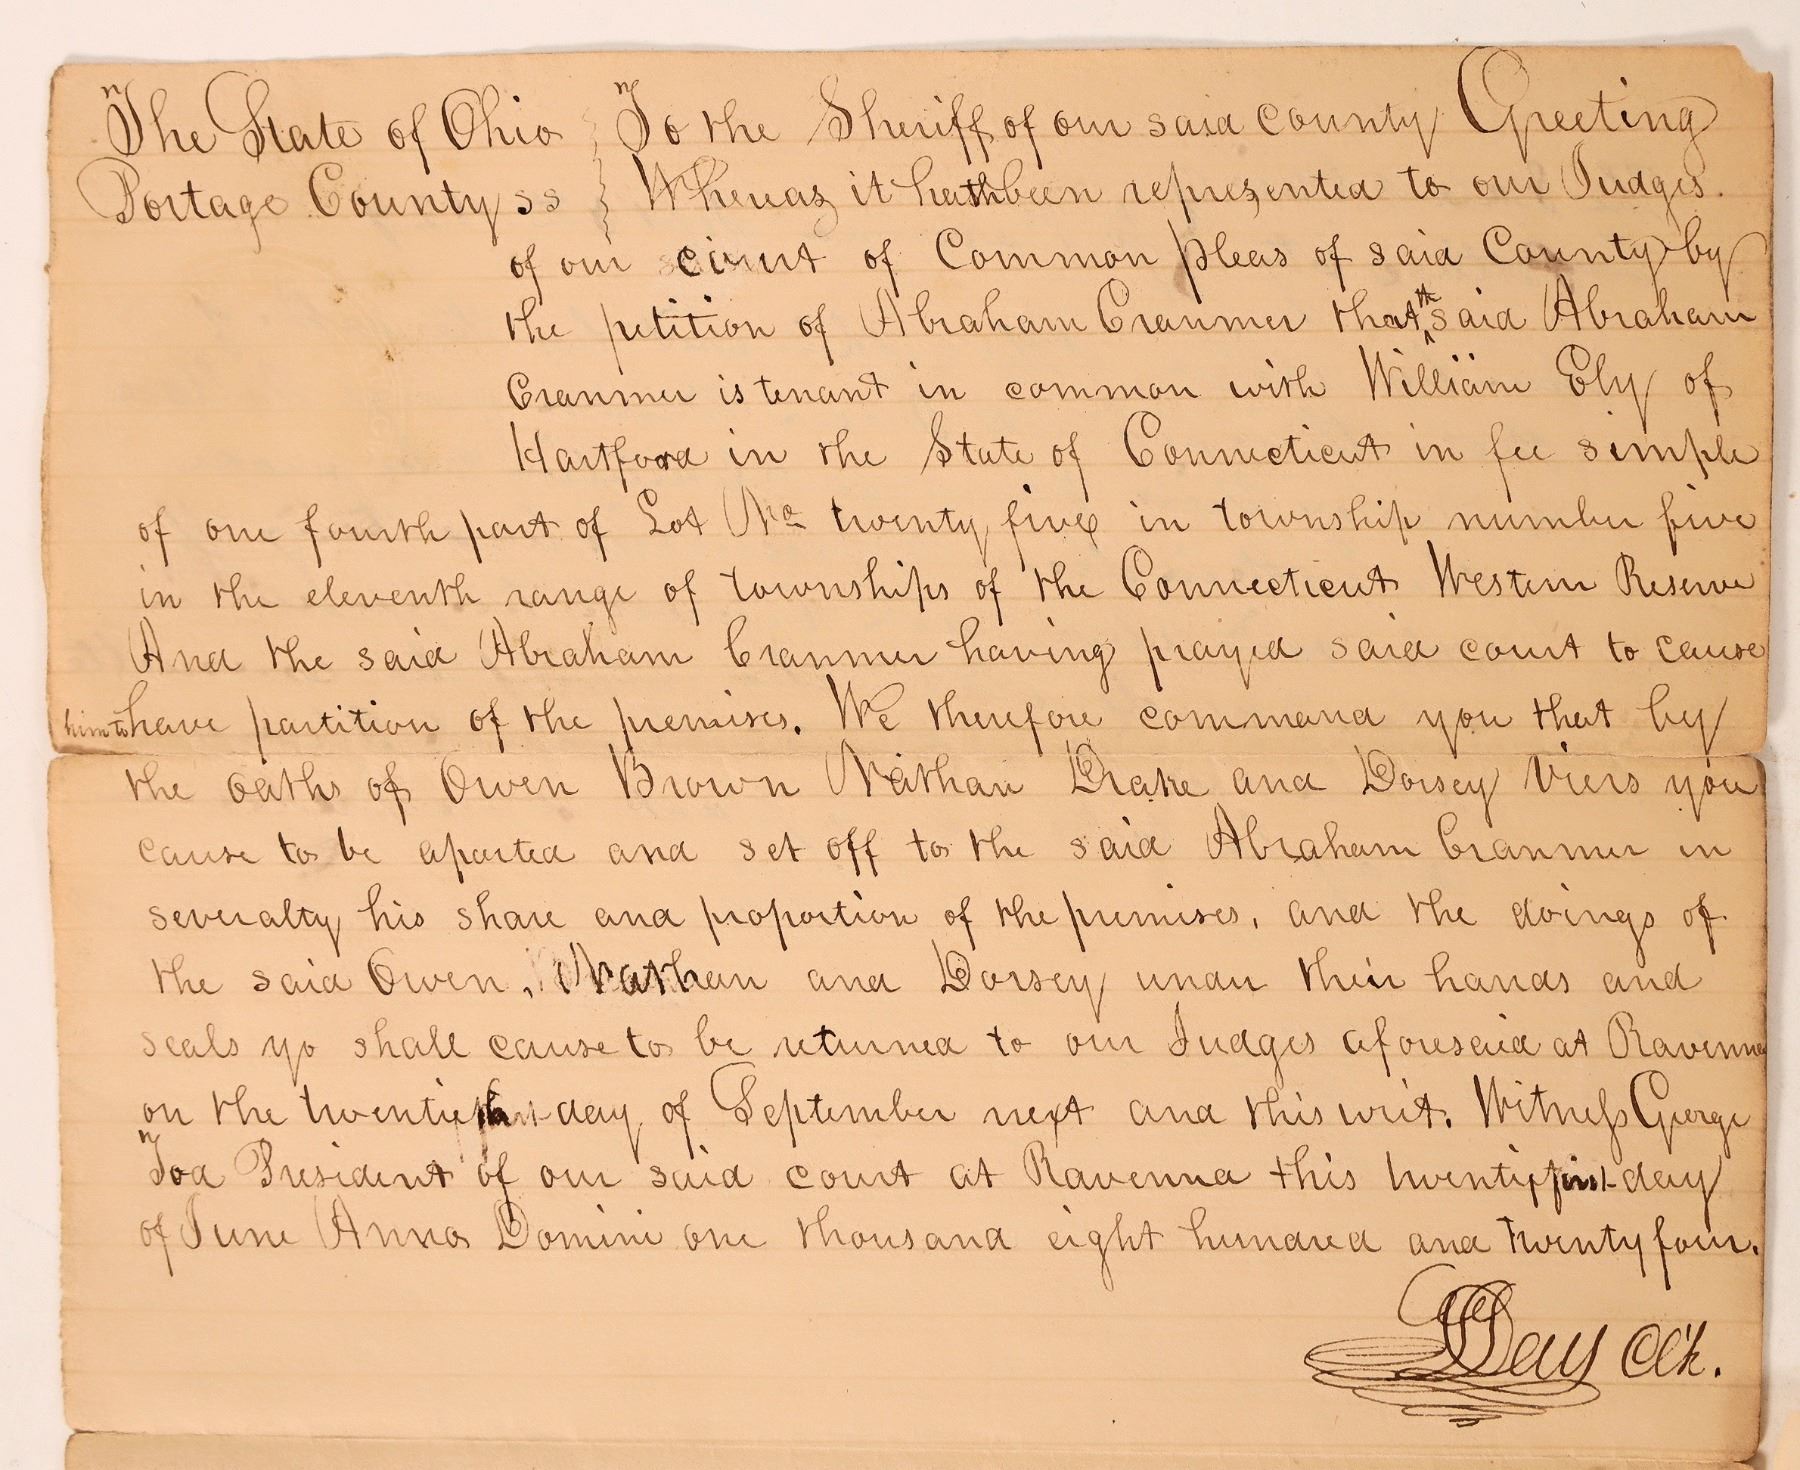 The State of Ohio } To the Sheriff of our said County Greeting
Portage County ss } Whereas it hath been represented to our Judges
of our court of Common pleas of said County by
the petition of Abraham Cranmer that th said Abraham
Cranmer is tenant in common with William Ely of
Hartford in the State of Connecticut in fee simple
of one fourth part of Lot No twenty five in township number five
in the eleventh range of townships of the Connecticut Western Reserve
And the said Abraham Cranmer having prayed said court to cause
him to have partition of the premises. We therefore command you that by
the oaths of Owen Brown Nathan Drake and Dorsey Viers you
cause to be aparted and set off to the said Abraham Cranmer in
severalty his share and proportion of the premises, and the doings of
the said Owen, Nathan and Dorsey under their hands and
seals yo shall cause to be returned to our Judges aforesaid at Ravenna
on the day of September next and this writ. Witness George
Tod President of our said court at Ravenna this twenty first day
of June Anno Domini one thousand eight hundred and twenty four.
Day Clk.